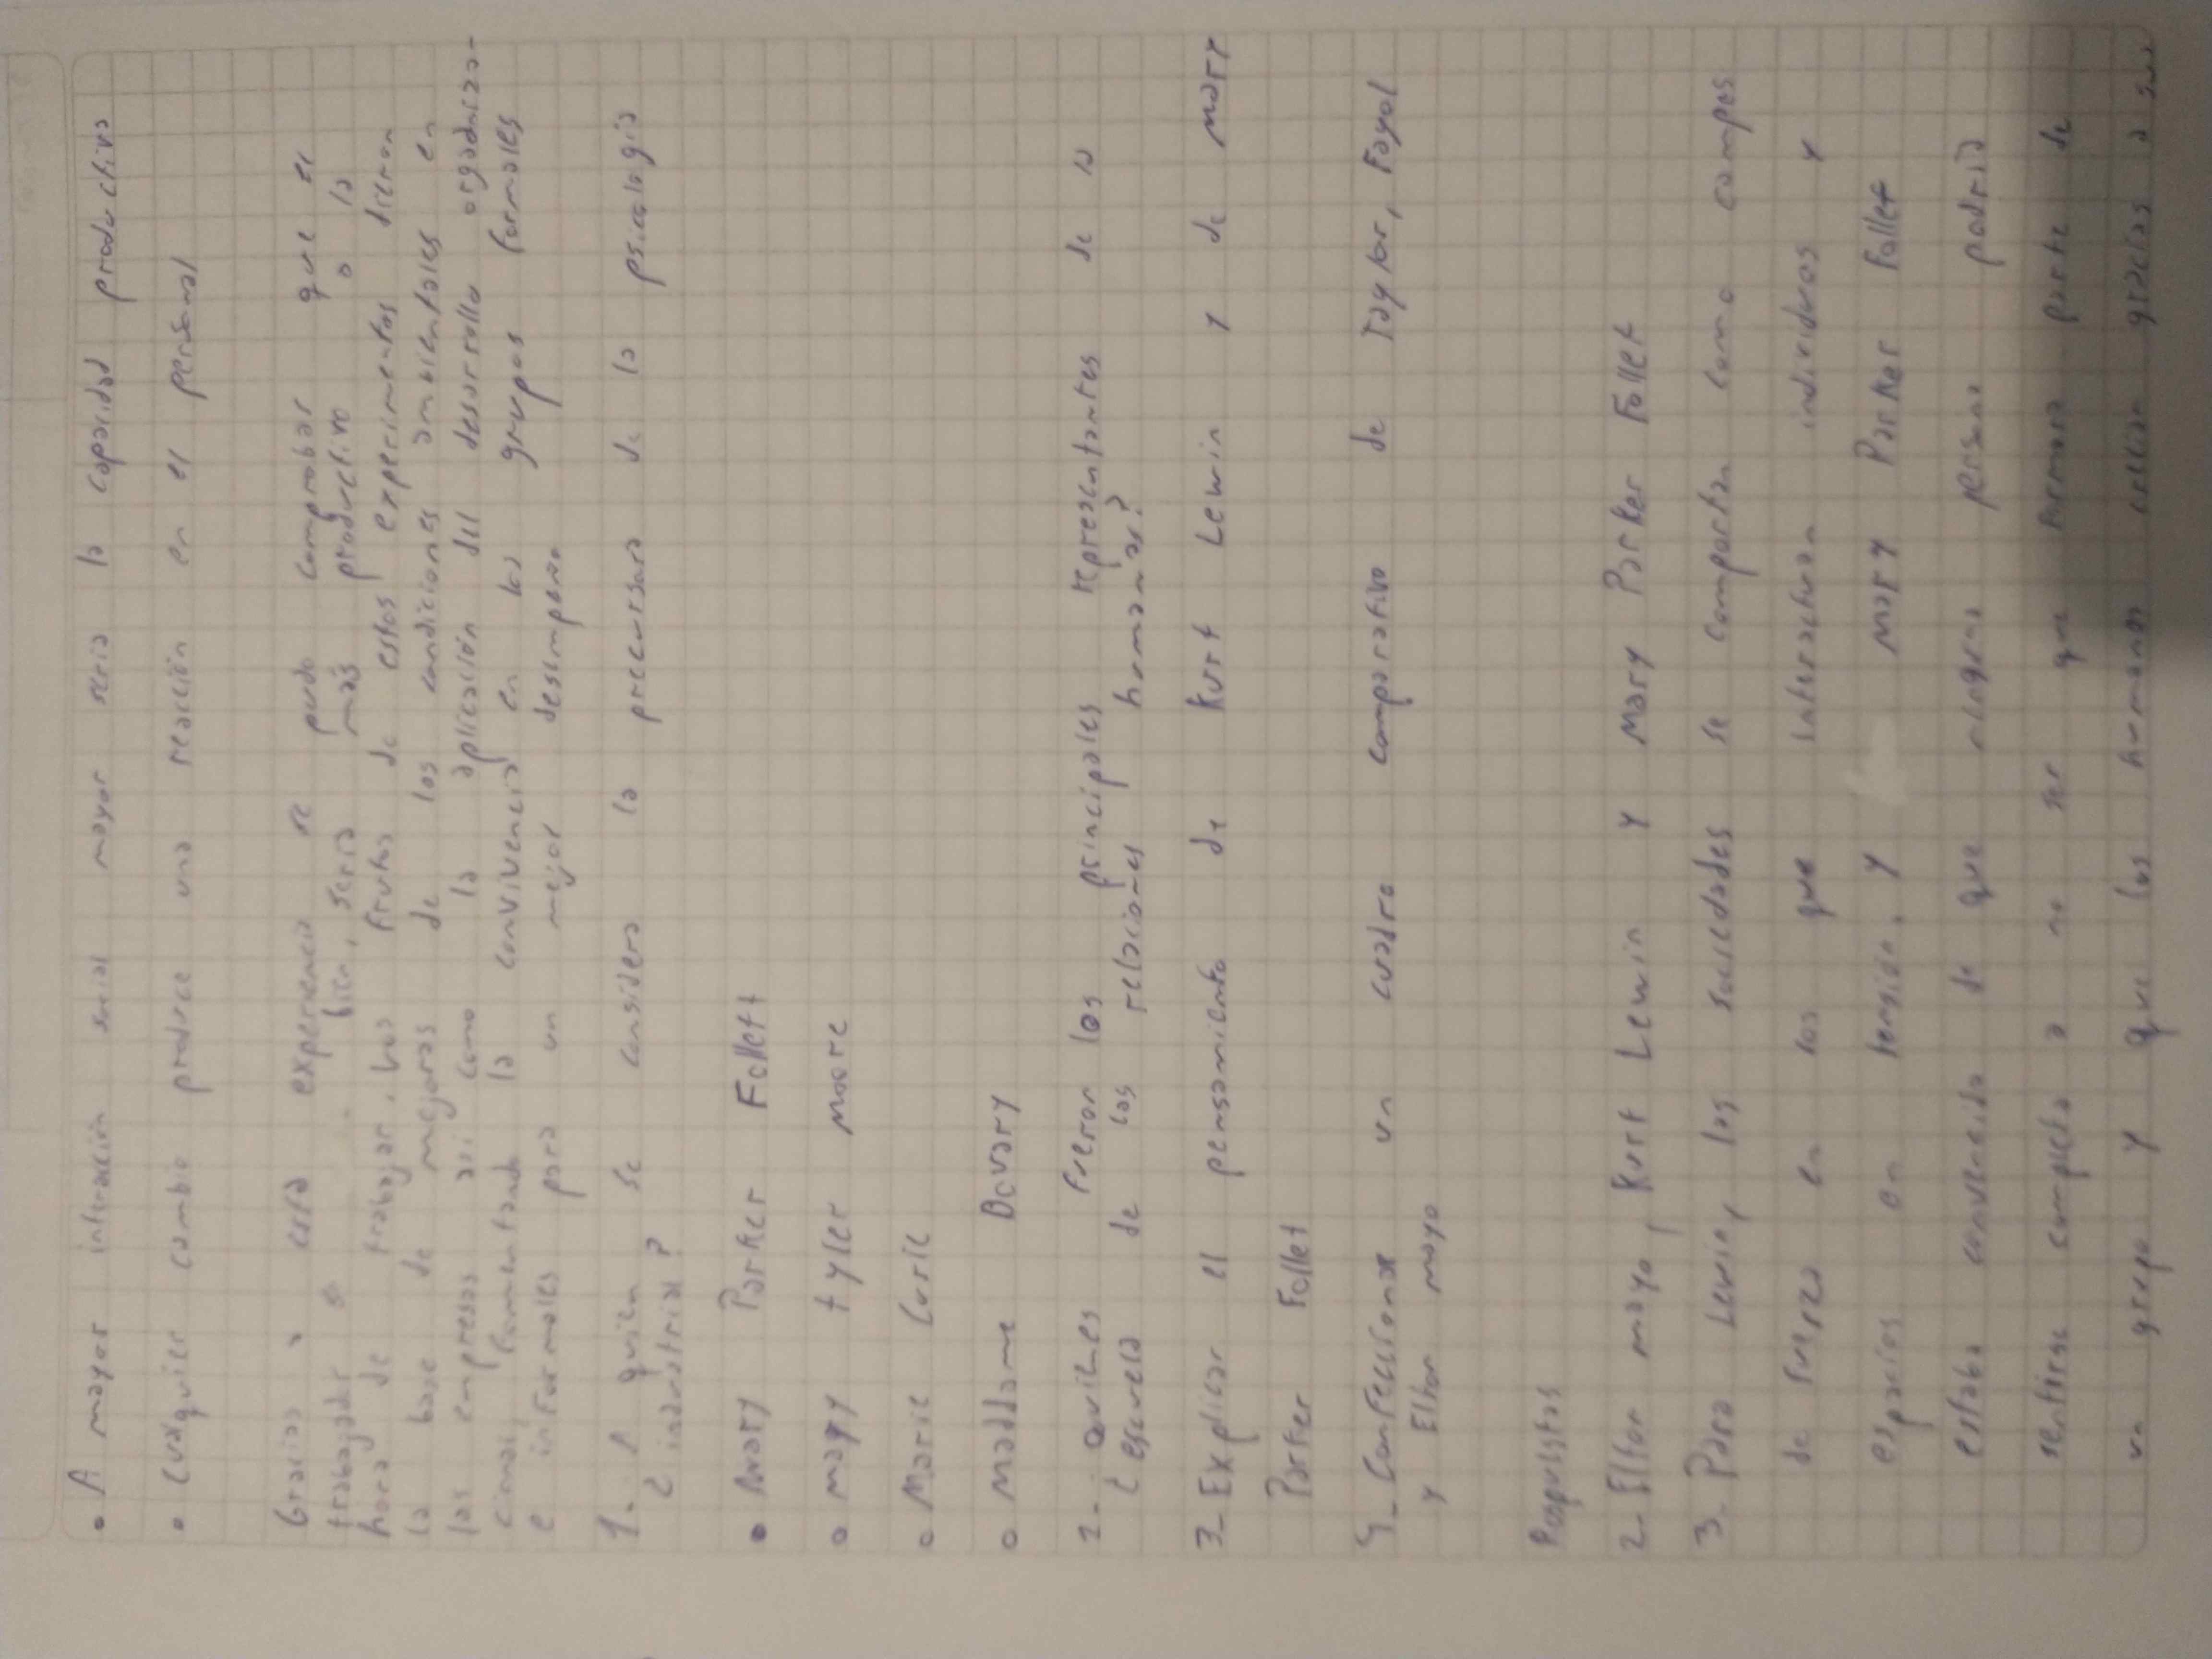 • A mayor interacción social mayor seria la capacidad productiva
• Cualquier cambio produce una reacción en el personal
Gracias a esta experiencia se pudo comprobar que el
trabajador si bien, seria más productivo o la
hora de trabajar. Los frutos de estos experimentos dieron
la base de mejoras de los condiciones ambientales en
las empresas asi como la aplicación del desarrollo organizacio-
cional, fomentando la convivencia en los grupos formales
e informales para un mejor desempeño
1- A quién se considera la precursora de la psicología
¿ industrial?
• Mary Parker Follett
o mayy tyler moore
o Marie Curie
o maddame Bovary
2- Quiénes fueron los principales representantes de la
¿ escuela de las relaciones humanas?
3- Explicar el pensamiento de Kurt Lewin y de mary
Parker Follet
4- Confeccionar un cuadro comparativo de Taylor, Fayol
y Elton mayo
Respuestas
2- Elton mayo, Kurt Lewin y Mary Parker Follet
3- Para Lewin, las sociedades se comportan como campos
de fuerza en los que interactuan individuos y
espacios en tensión, y mary Parker Follet
estaba convencida de que ninguna persona podria
sentirse completa a no ser que formara parte de
un grupo y que los humanos crecian gracias a sus